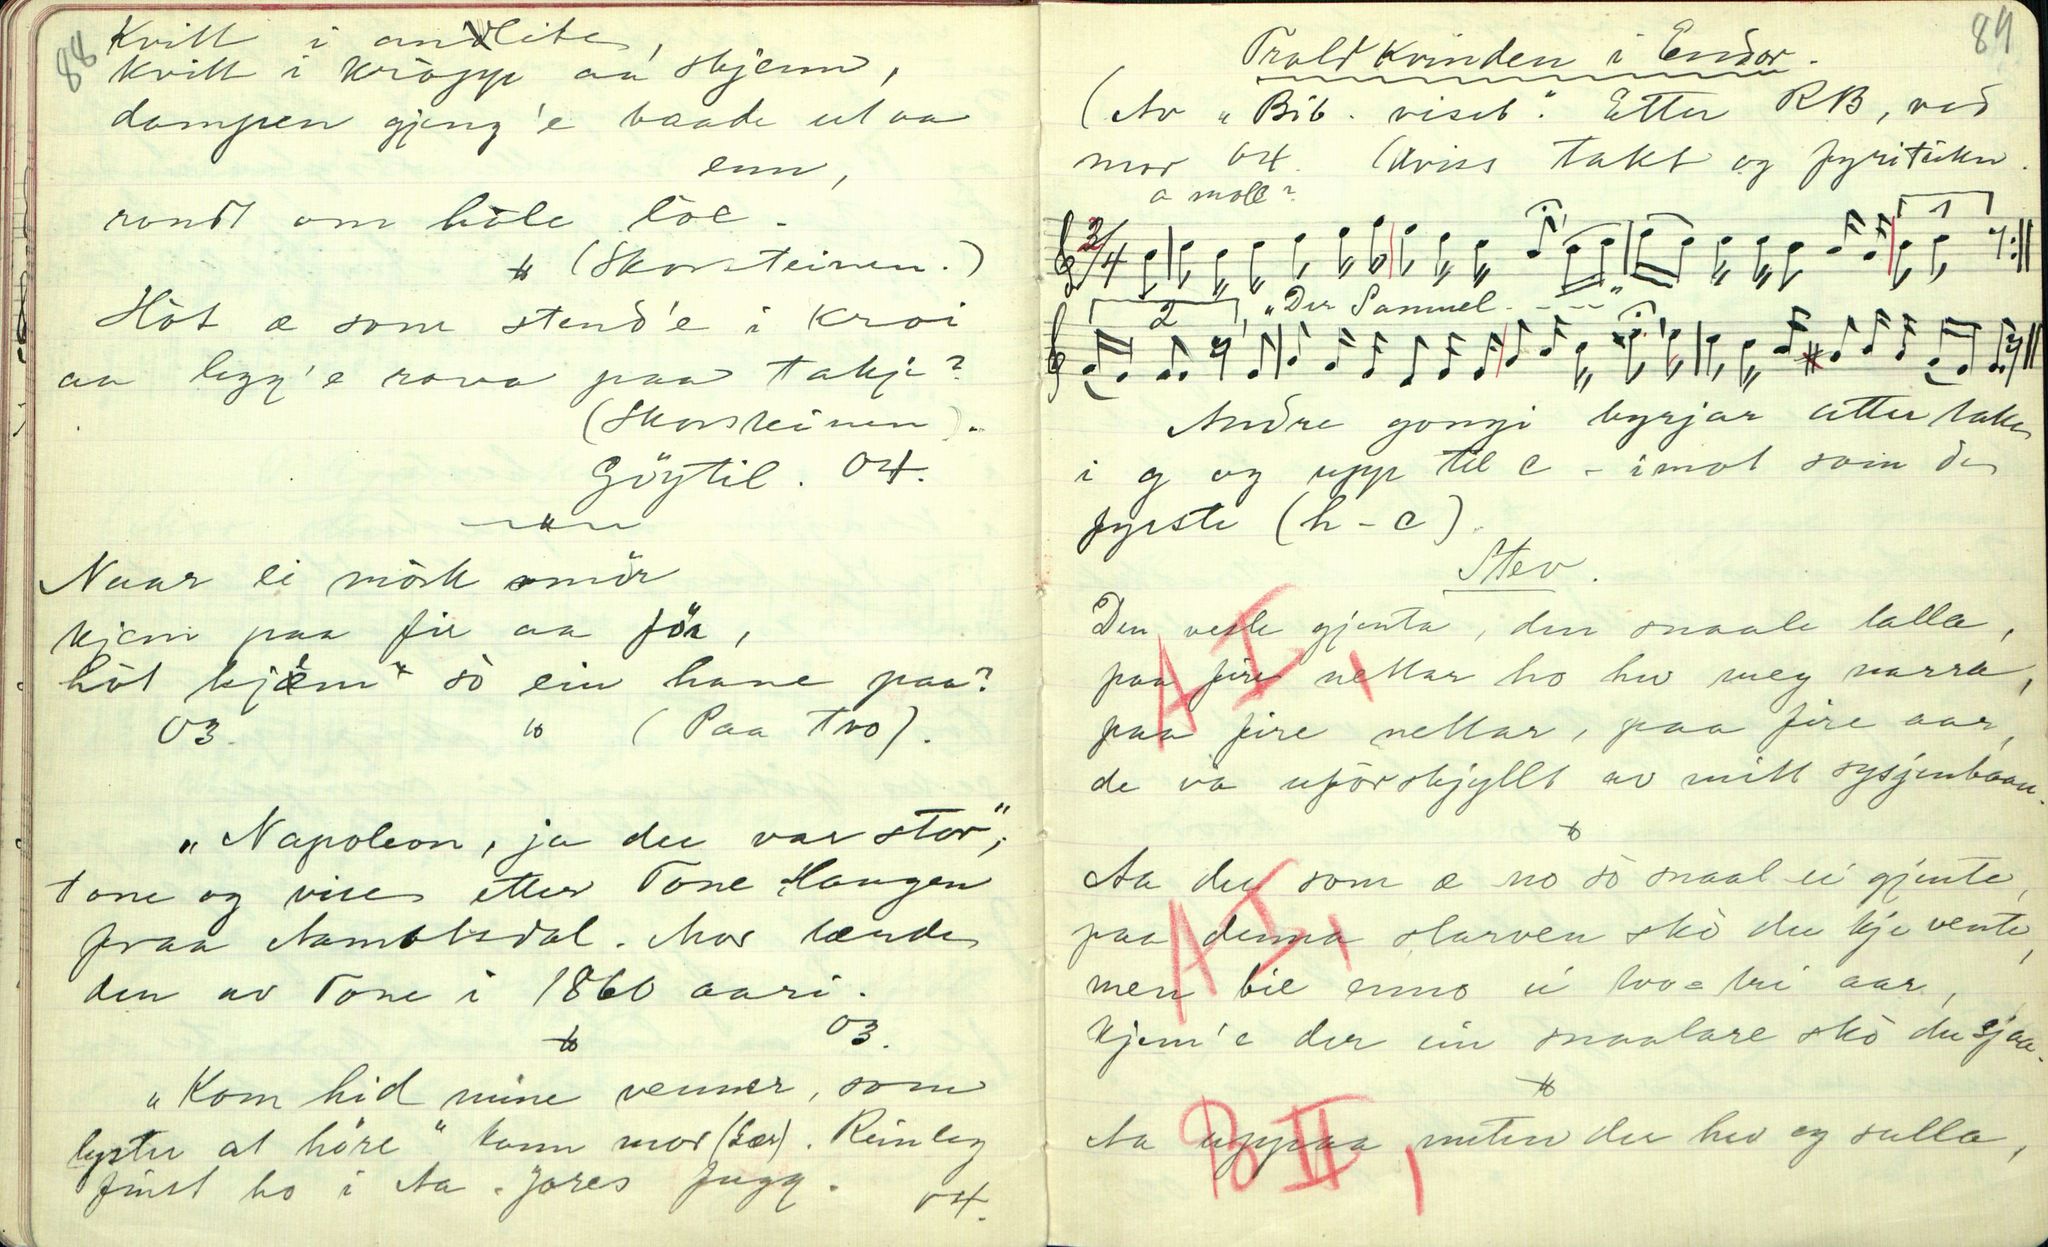 88
Kvitt i andlite,
kvitt i kròpp aa skjenn,
dampen gjeng'e baade ut aa
enn,
rondt om høle löe.
(Skorsteinen.)
Hòt æ som stend'e i kroi
aa legg'e rova paa takje?
(Skorsteinen).
Göytil. 04.
Naar ei mörk smör
kjem paa fir aa för,
hòt kjèm sò ein hane paa?
03. (Paa tvo).
"Napoleon, ja du var stor",
tone og vise etter Tone Haugen
fraa Aamotsdal. Mor lærde
den av Tone i 1860 aari.
03.
"Kom hid mine venner, som
lyster at höre" kann mor (lær). Reinleg
finst ho i Aa. Jores Jugg.
04.
89
Troldkvinden i Endor.
(Av "Bib. viseb." Etter RB, ved
mor 04. Uviss takt og fyriteikn.
a moll?
3/4
1
2 "Der Samuel - - - -"
Andre gongi byrjar etter taka
i g og upp til c - imot som den
fyrste (h - c).
Stev.
Den vesle gjenta, den snaale talla,
paa fire nettar ho hev meg narra,
paa fire nettar, paa fire aar,
de va uförskjyllt av mitt sysjenbaan.
A I,
Aa du som æ no sò snaal ei gjente,
paa denna starven skò du kje vente,
men bie enno ei tvo-tri aar,
kjem'e der ein snaalare skò du sjaa.
A I,
Aa uppaa nuten der hev eg salla,
B II,